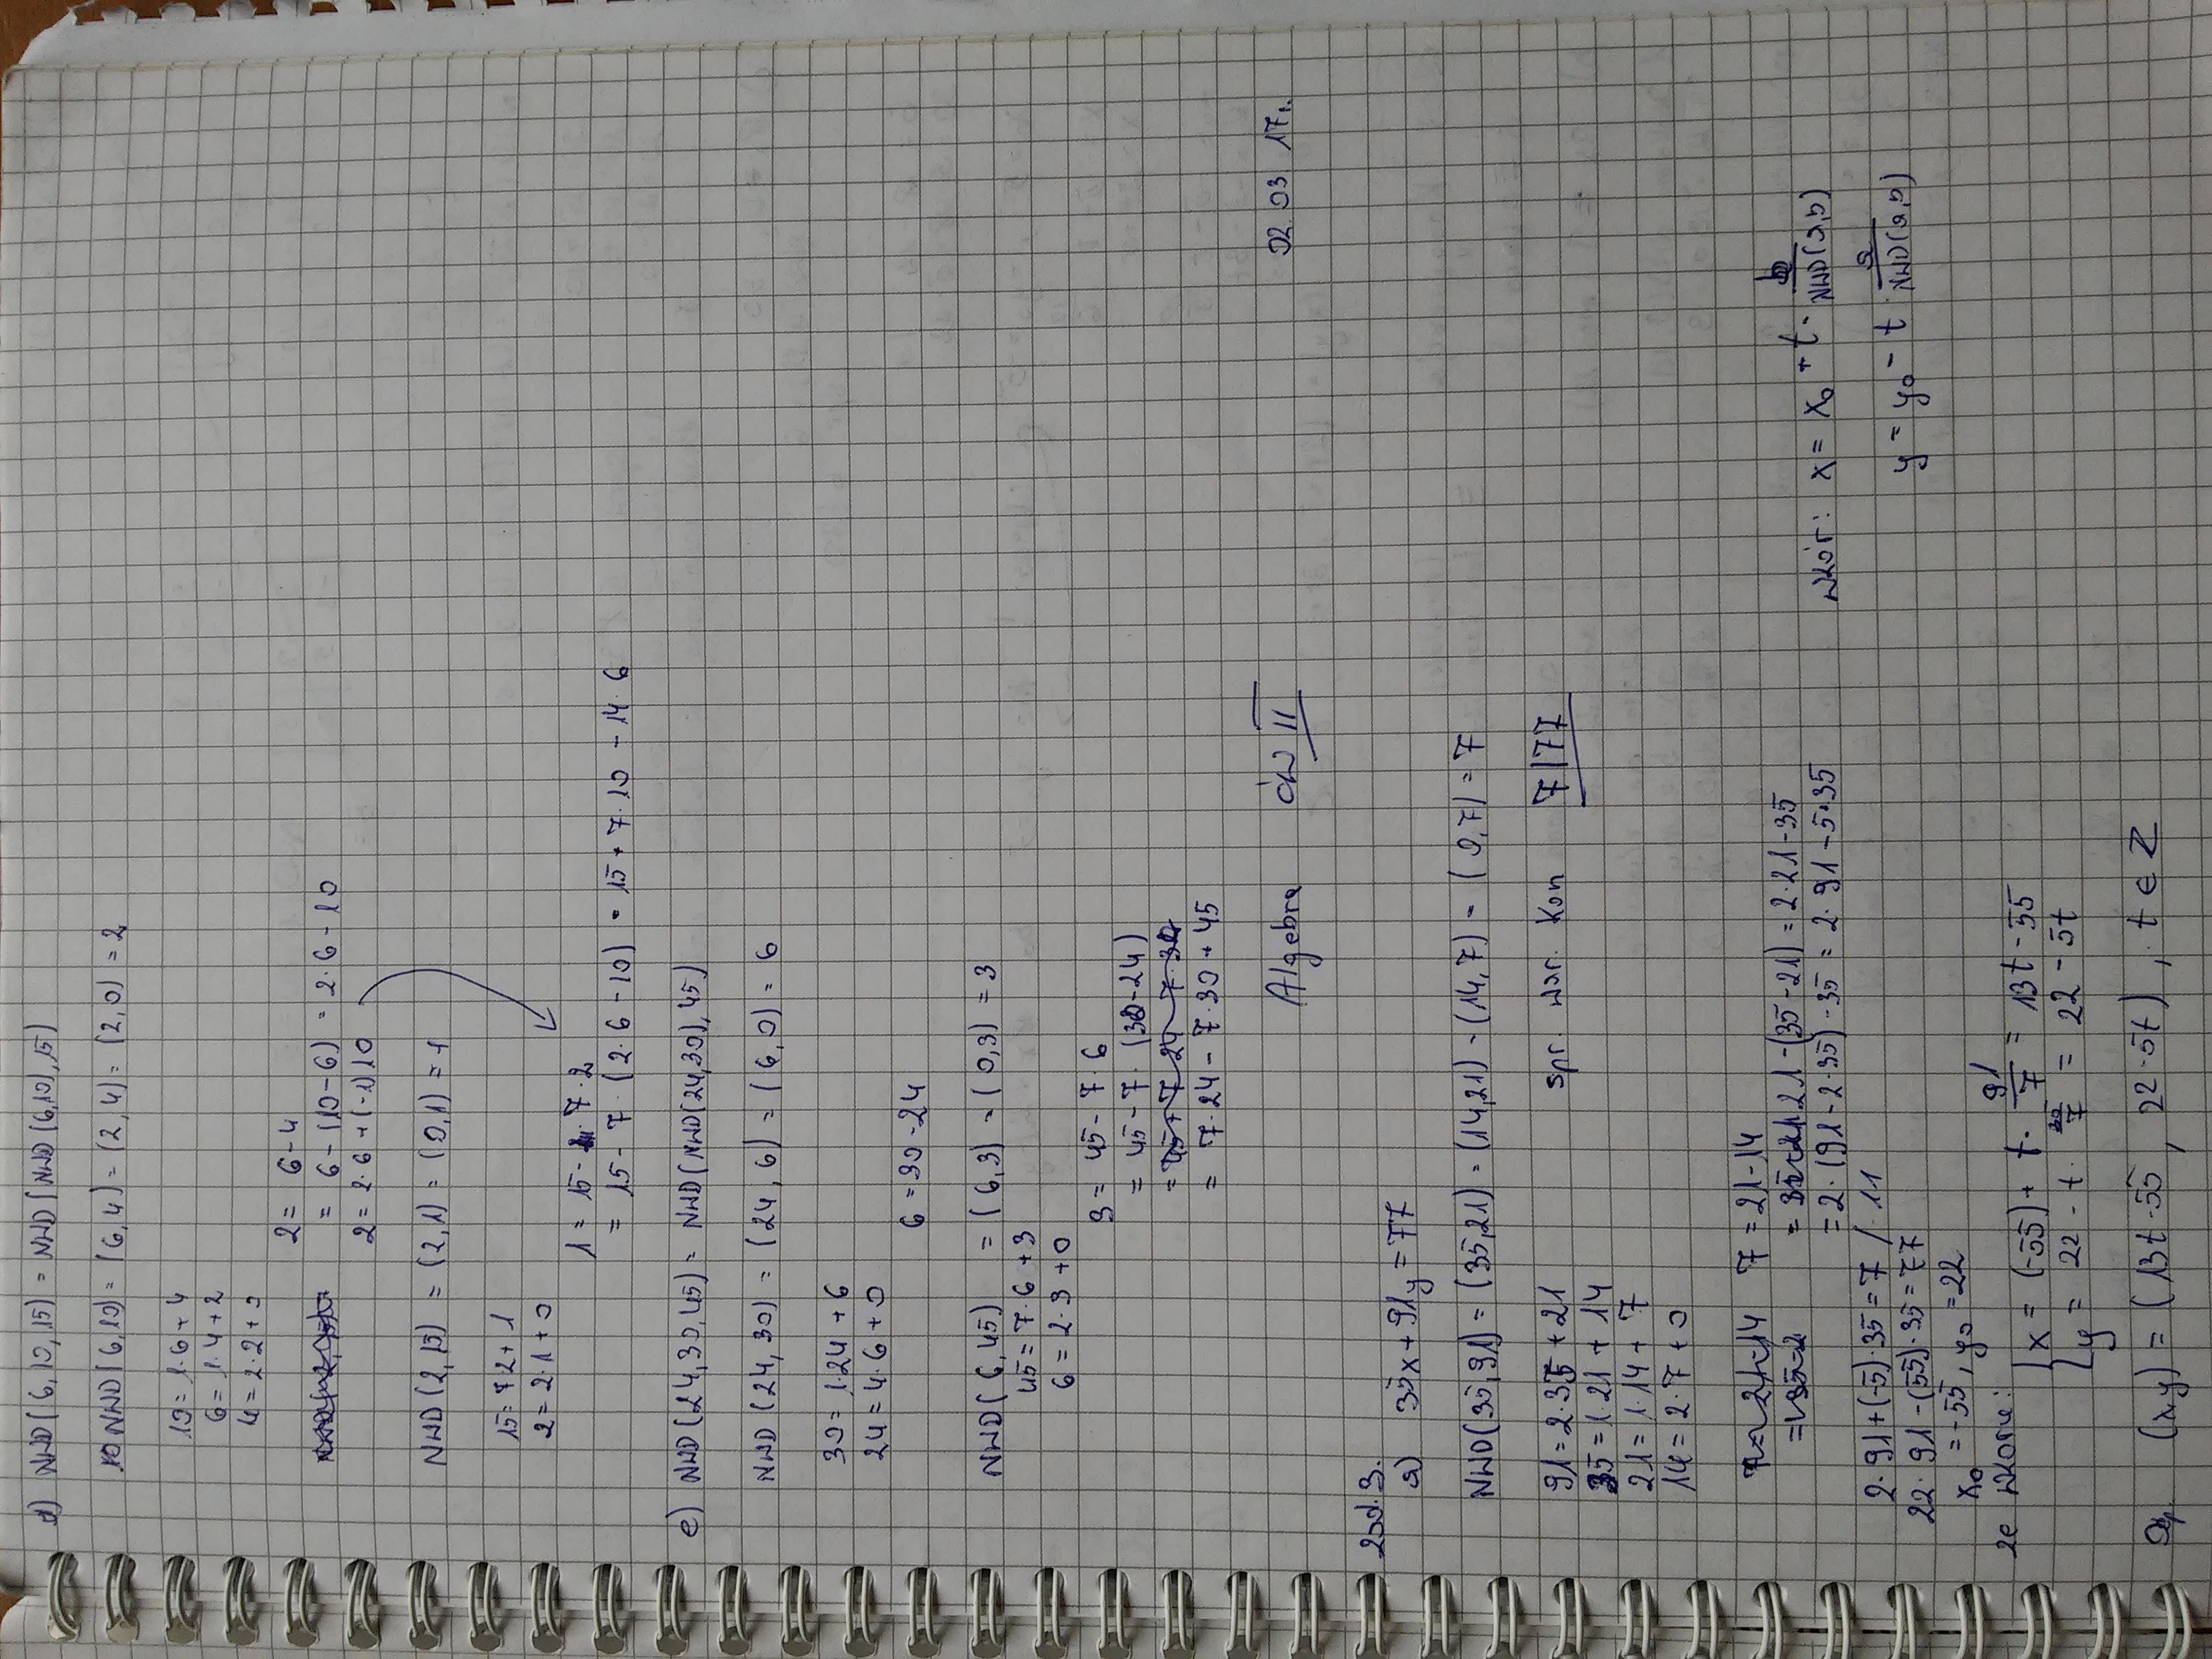 d) NWD(6,10,15) = NWD(NWD(6,10),15)
NWD(6,10) = (6,4) = (2,4) = (2,0) = 2
10 = 1·6 + 4
6 = 1·4 + 2
4 = 2·2 + 0
2 = 6-4
= 6-(10-6) = 2·6 - 10
2 = 2·6 + (-1)10
NWD(2,15) = (2,1) = (0,1) = 1
15 = 7 2 + 1
2 = 2·1 + 0
1 = 15 - 7·2
= 15 - 7·(2·6-10) = 15 + 7·10 - 14·6
e) NWD(24,30,45) = NWD(NWD(24,30),45)
NWD(24,30) = (24,6) = (6,0) = 6
30 = 1·24 + 6
24 = 4·6 + 0
6 = 30-24
NWD(6,45) = (6,3) = (0,3) = 3
45 = 7·6 + 3
6 = 2·3 + 0
3 = 45 - 7·6
= 45 - 7·(30-24)
= 45 + 7 24 - 7·30
= 7·24 - 7·30 + 45
Algebra ćw II 02.03.17r.
Zad. 3.
a) 35x + 91y = 77
NWD(35,91) = (35,21) = (14,21) = (14,7) = (0,7) = 7
91 = 2·35 + 21 spr. war. kon 7|77
35 = 1·21 + 14
21 = 1·14 + 7
14 = 2·7 + 0
7 = 21-14 7 = 21-14
= 35-2 = 35-21 21-(35-21) = 2·21-35
= 2·(91-2·35)-35 = 2·91-5·35
wzór: x = x₀ + t · b/NWD(a,b)
y = y₀ - t · a/NWD(a,b)
2·91 + (-5)·35 = 7 /·11
22·91 - (55)·35 = 77
x₀ = -55, y₀ = 22
ze wzoru:
{ x = (-55) + t · 91/7 = 13t - 55
y = 22 - t · 35/7 = 22 - 5t
Odp. (x,y) = (13t-55, 22-5t), t ∈ Z